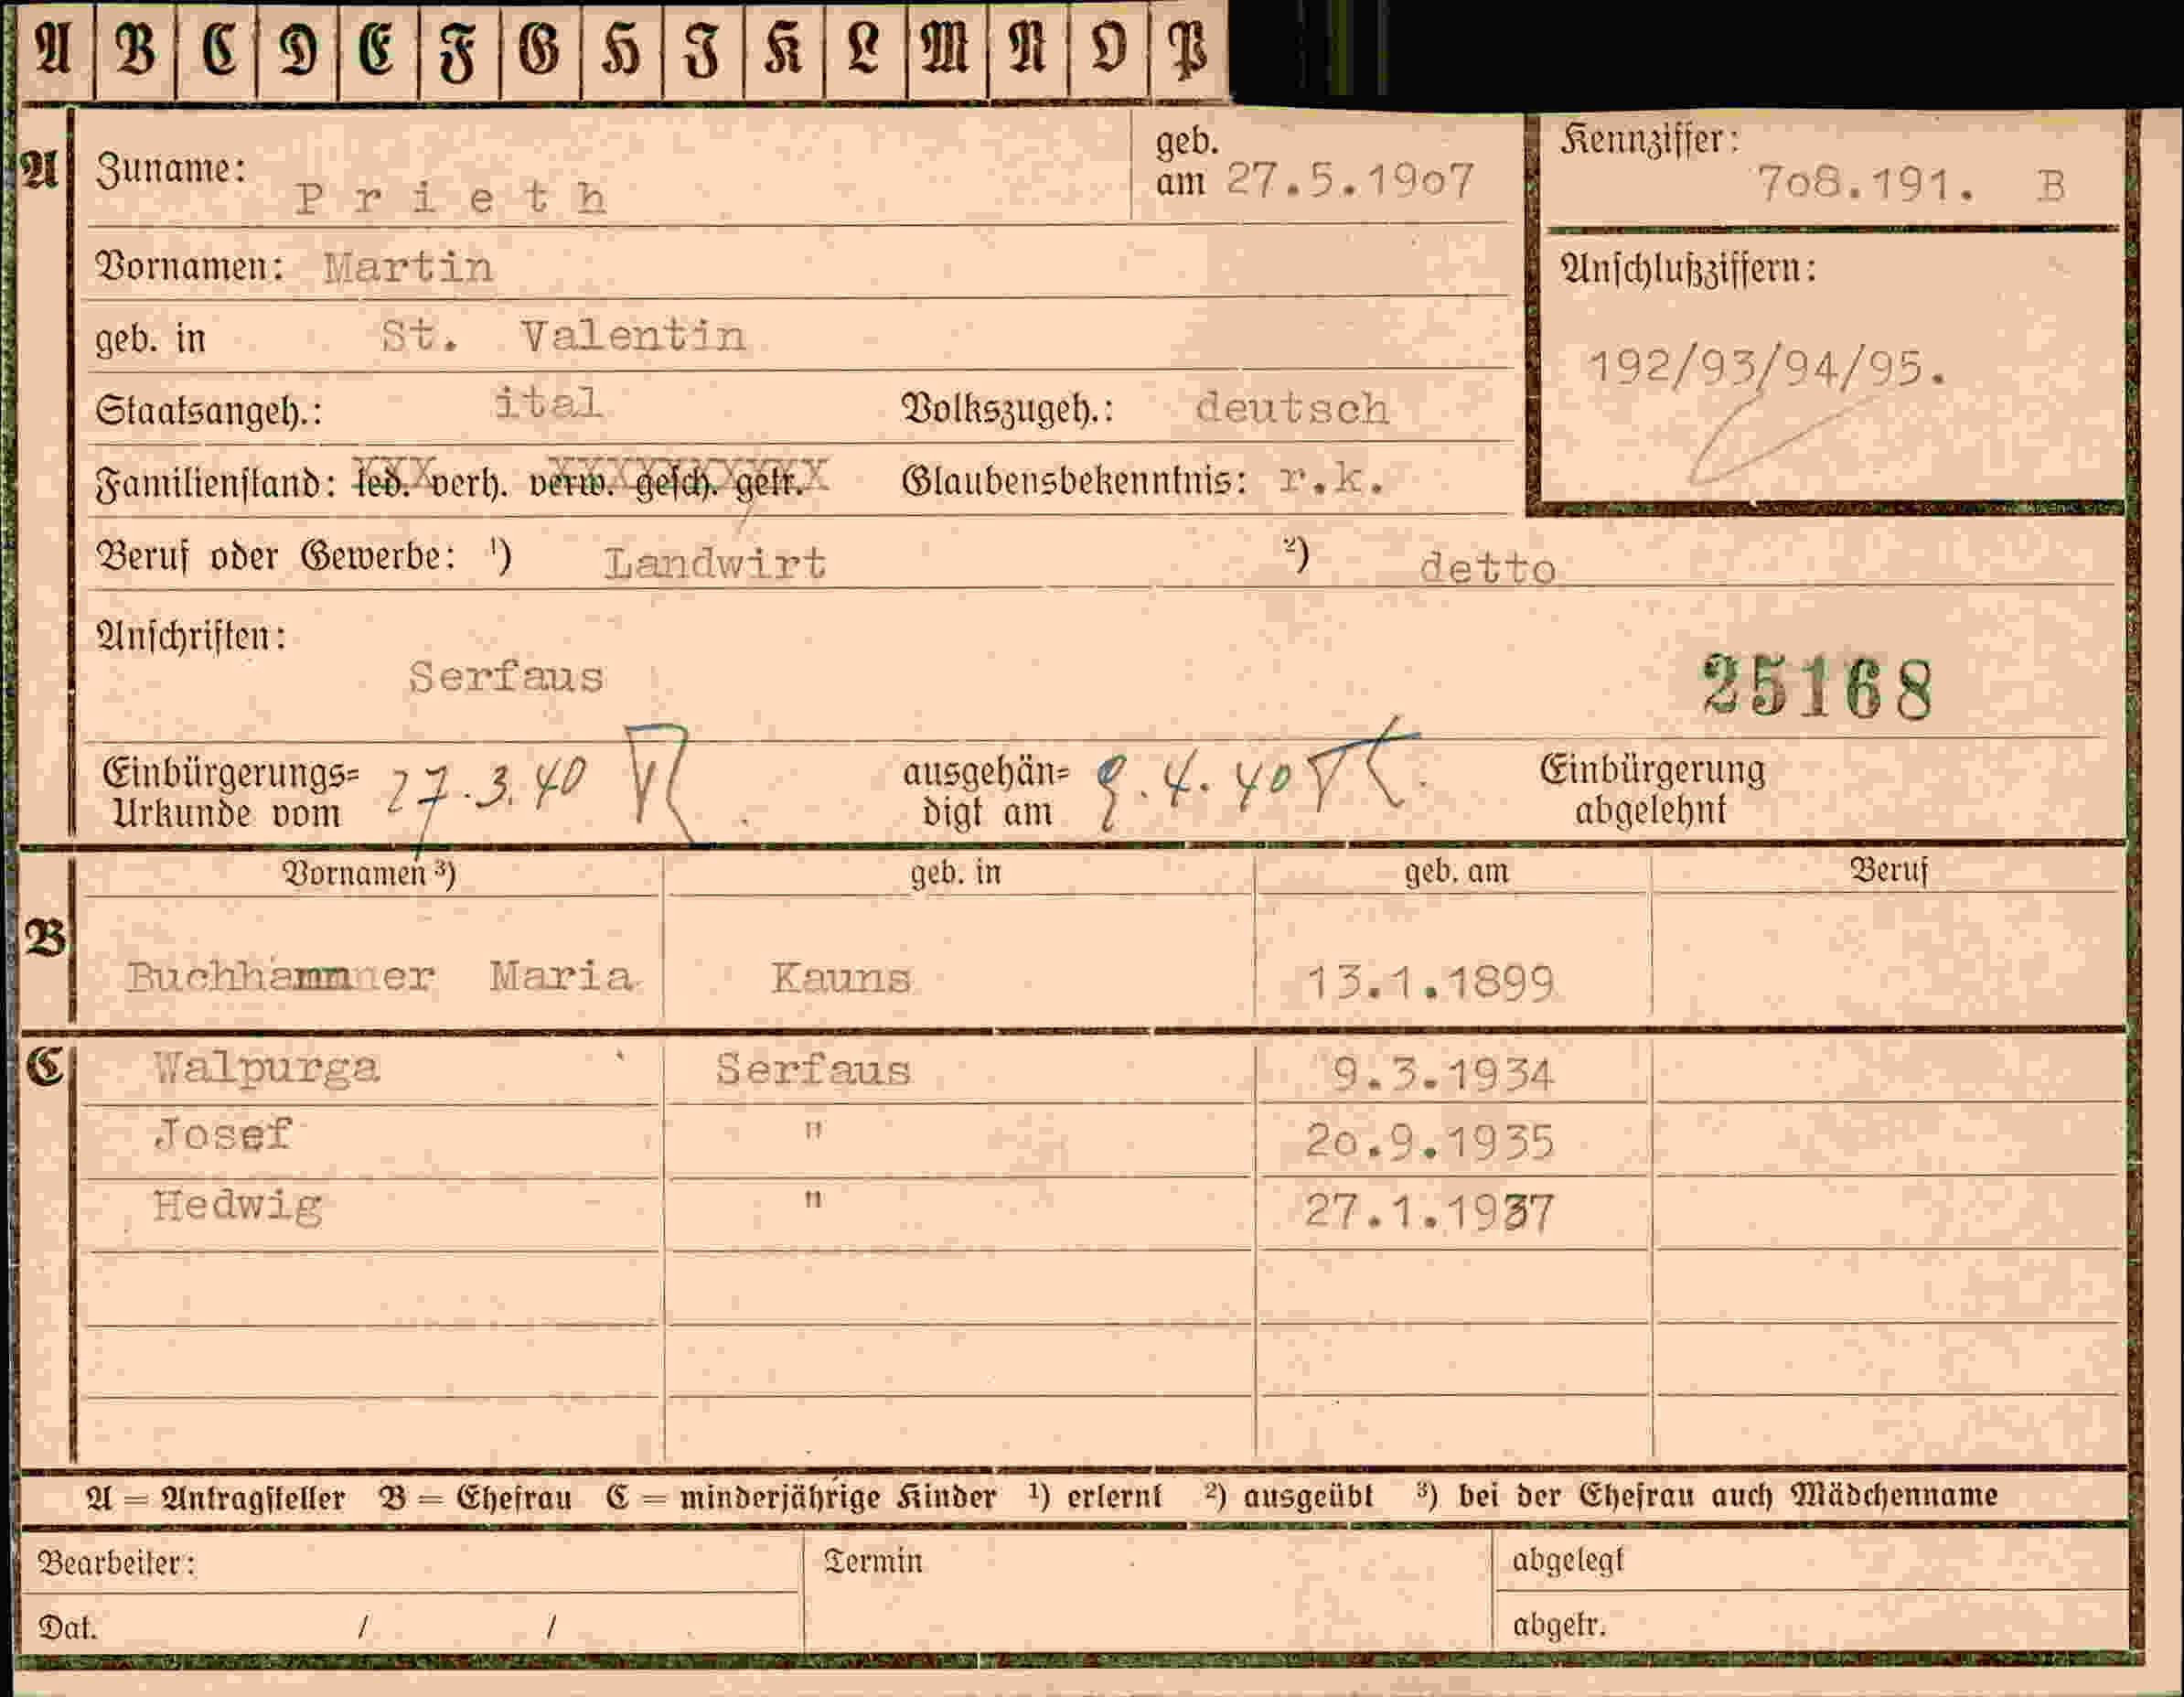 A B C D E F G H J K L M N O P
A Zuname: Prieth geb. am 27.5.1907 Kennziffer: 708.191. B
Vornamen: Martin
Anschlußziffern:
geb. in St. Valentin
192/93/94/95.
Staatsangeh.: ital Volkszugeh.: deutsch
Familienstand: led. verh. verw. gesch. getr. Glaubensbekenntnis: r.k.
Beruf oder Gewerbe: ¹) Landwirt ²) detto
Anschriften:
Serfaus
25168
Einbürgerungs= Urkunde vom 27.3.40 ausgehän= digt am 9.4.40 Einbürgerung abgelehnt
Vornamen ³) geb. in geb. am Beruf
B
Maria Kauns 13.1.1899
C Walpurga Serfaus 9.3.1934
Josef " 20.9.1935
Hedwig " 27.1.1937
A = Antragsteller B = Ehefrau C = minderjährige Kinder ¹) erlernt ²) ausgeübt ³) bei der Ehefrau auch Mädchenname
Bearbeiter: Termin abgelegt
Dat. / / abgetr.